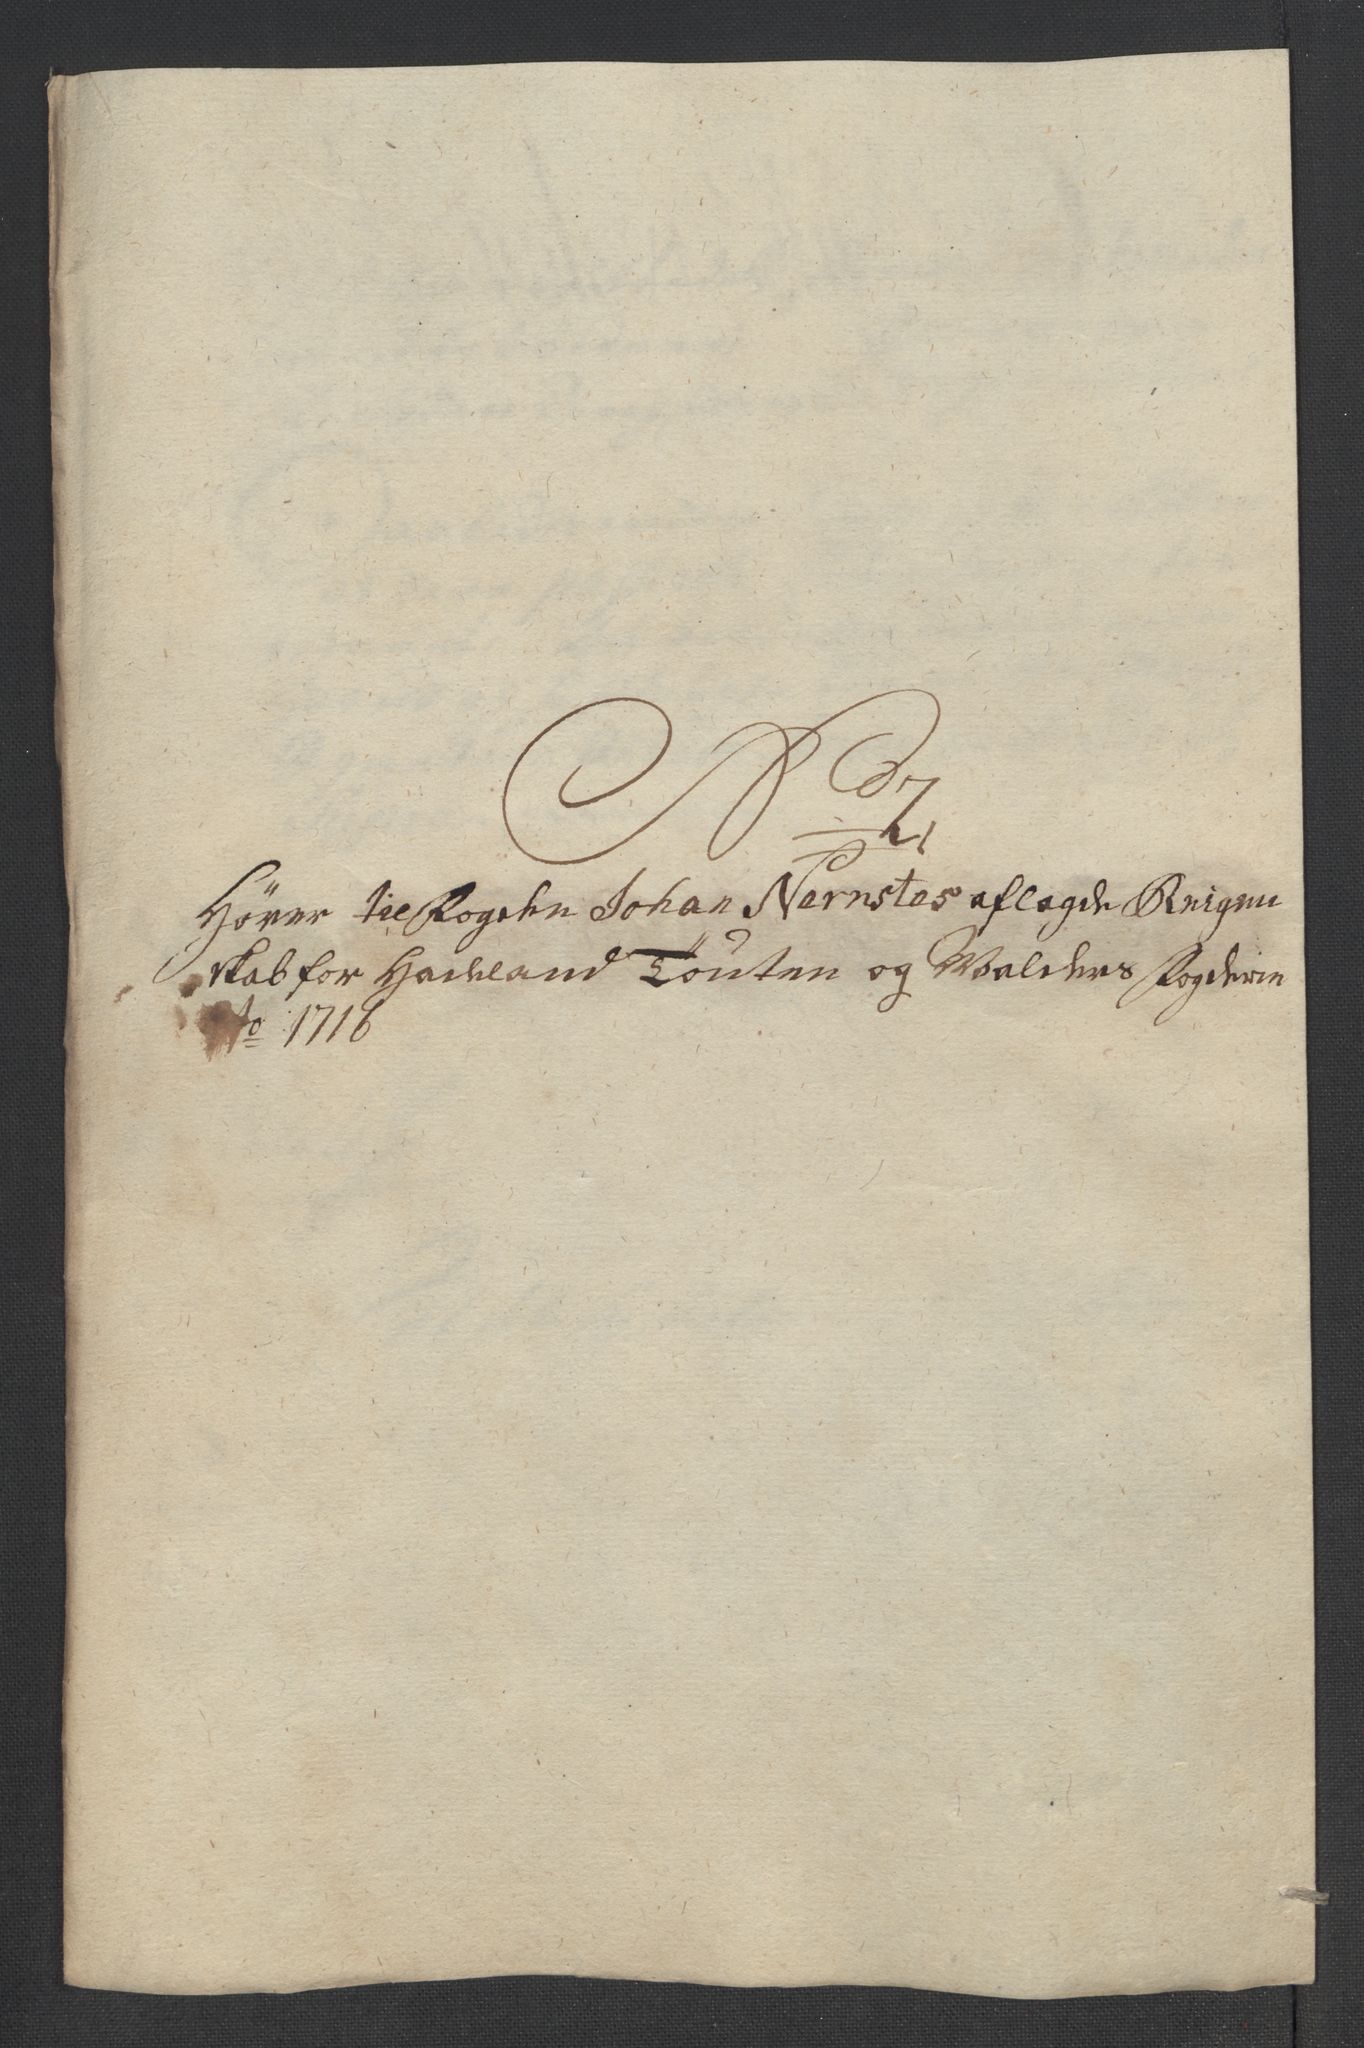 No 7
Hörer til Fogden Johan Nernstes aflagde Reigen
skab for Hadeland Töuten og Walders Fogderie
Ao 1716